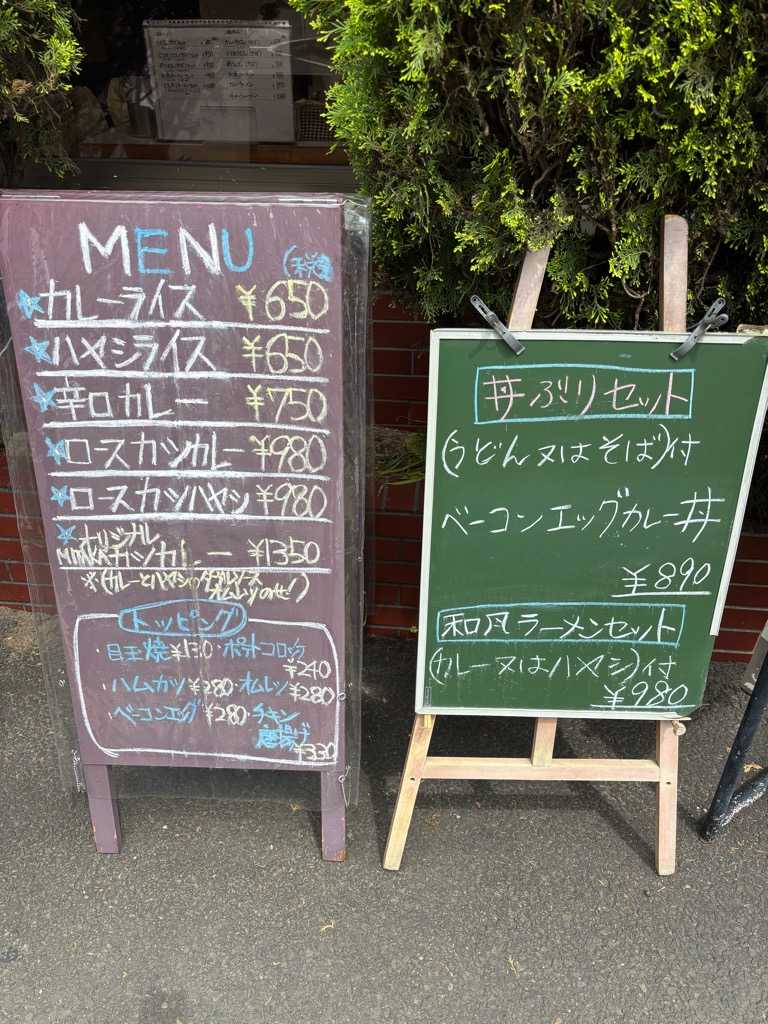 MENU
(税込
★カレーライス ¥650
★ハヤシライス ¥650
★辛口カレー ¥750
★ロースカツカレー ¥980
★ロースカツハヤシ ¥980
★オリジナル
カツカレー ¥1350
※(カレーとハヤシのダブルソース
オムレツのせ!)
トッピング
・目玉焼¥130・ポテトコロッケ
¥240
・ハムカツ¥280・オムレツ¥280
・ベーコンエッグ¥280・チキン
唐揚げ
¥330
丼ぶりセット
(うどん又はそば)付
ベーコンエッグカレー丼
¥890
和風ラーメンセット
(カレー又はハヤシ)付
¥980